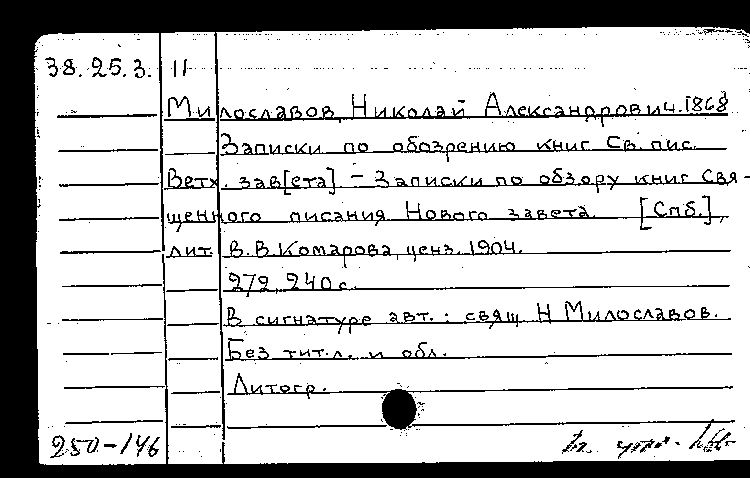 38.25.3. 11
Милославов, Николай Александрович. 1868
Записки по обозрению книг Св. пис.
Ветх. зав[ета]. – Записки по обзору книг Свя-
щенного писания Нового завета. [Спб.],
лит. В.В. Комарова, ценз. 1904.
272, 240 с.
В сигнатуре авт.: свящ. Н Милославов.
Без тит. л. и обл.
Литогр.
250-146